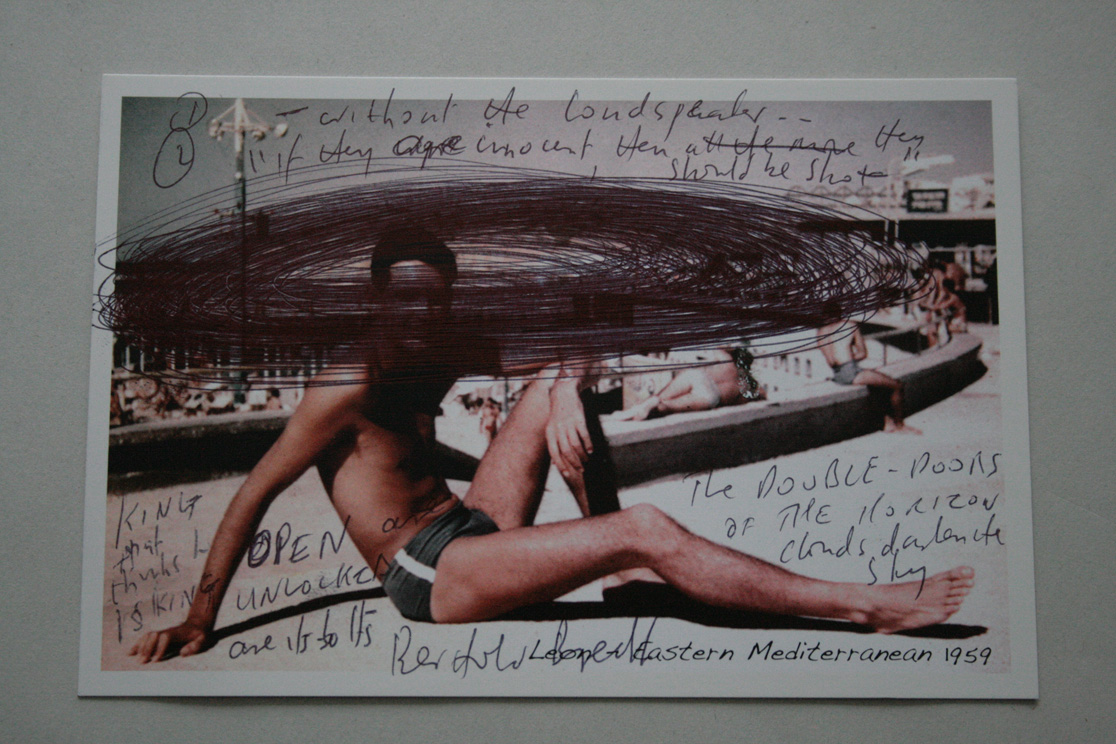 ①
②
- without the loudspeaker --
"if they are innocent then all the more they
should be shot"
The DOUBLE-DOORS
OF THE HORIZON
clouds darken the
sky
KING
that
thinks h
IS KING
OPEN are
UNLOCKED
are its bolts
Bertold Brecht
Leon - Eastern Mediterranean 1959